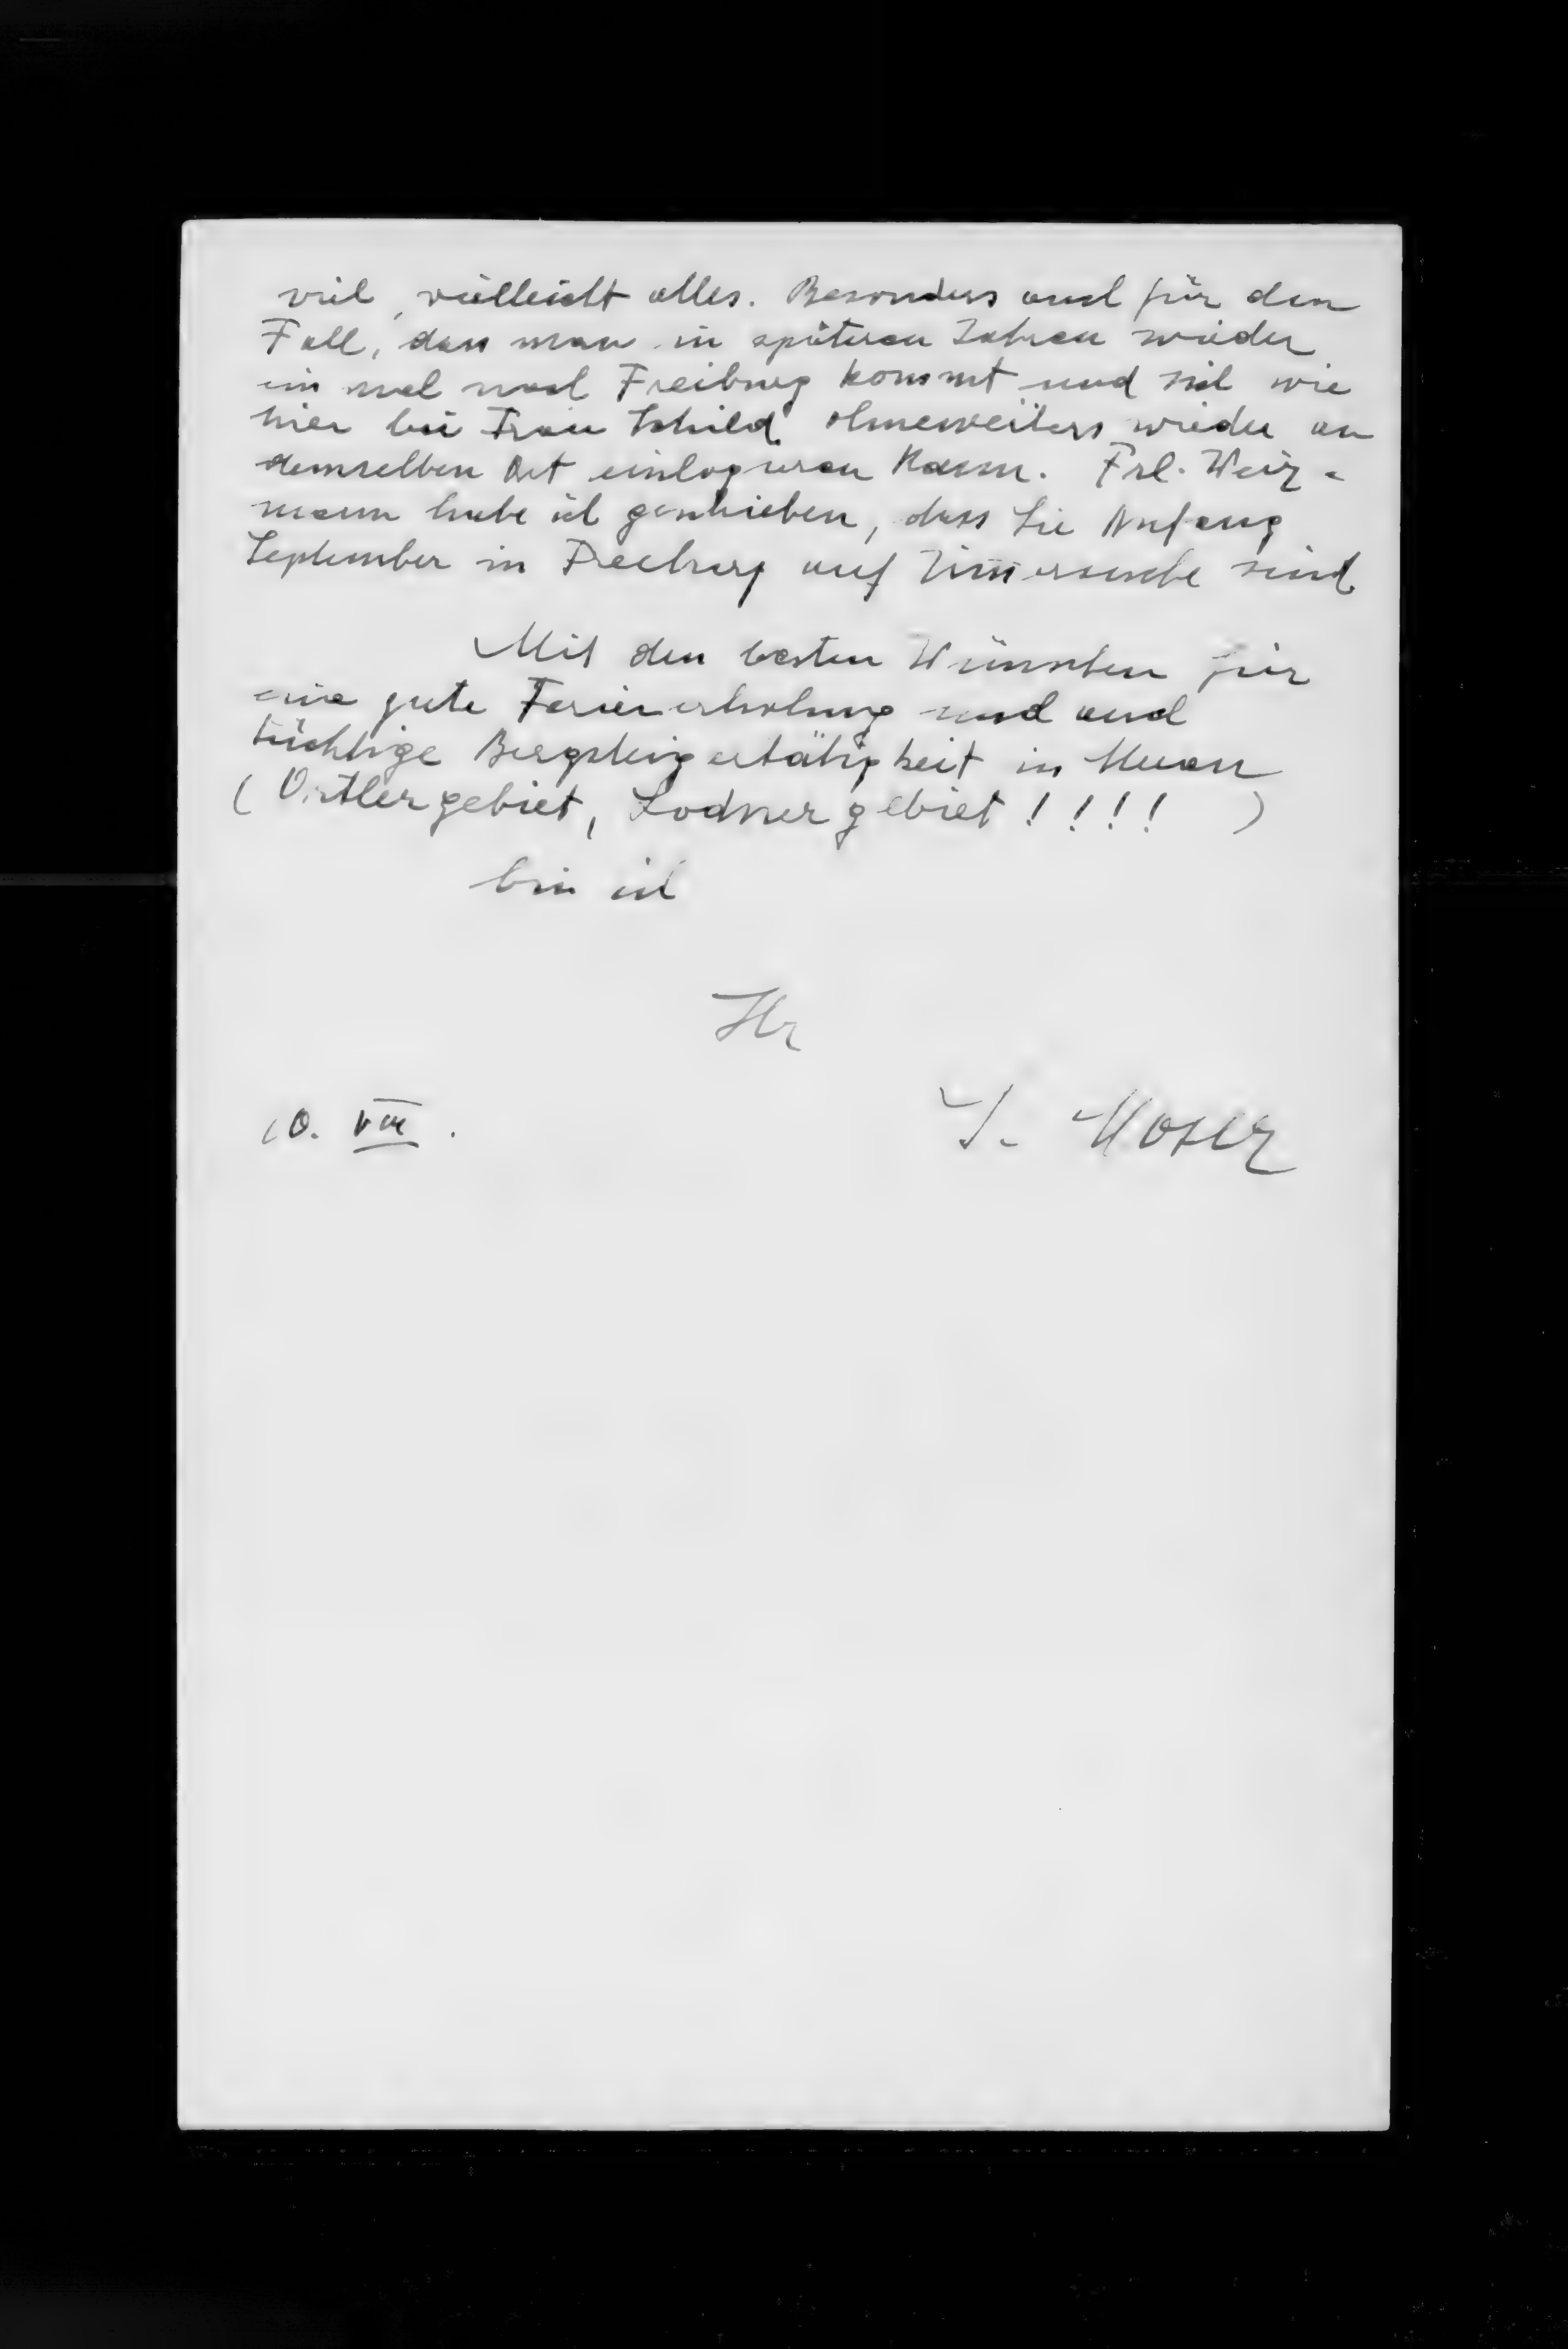 viel, vielleicht alles. Besonders auch für den
Fall, dass man in späteren Jahren wieder
ein mal nach Freiburg kommt und sich wie
hier bei Frau Schild ohneweiters wieder an
demselben Ort einlogieren kann. Frl. Weiz-
mann habe ich geschrieben, dass Sie Anfang
September in Freiburg auf Zimmersuche sind
Mit den besten Wünschen für
eine gute Ferienerholung und auch
tüchtige Bergsteigertätigkeit in Meran
(Ortlergebiet, Lodnergebiet !!!! )
bin ich
Ihr
10. VIII.
J. Moser